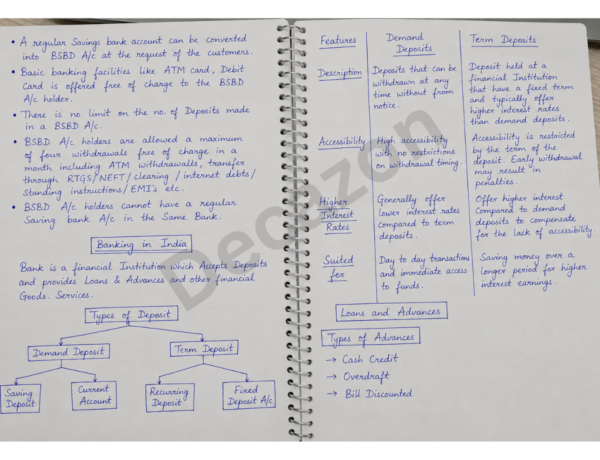 • A regular Savings bank account can be converted
into BSBD A/c at the request of the customers.
• Basic banking facilities like ATM card, Debit
Card is offered free of charge to the BSBD
A/c holder.
• There is no limit on the no. of Deposits made
in a BSBD A/c.
• BSBD A/c holders are allowed a maximum
of four withdrawals free of charge in a
month including ATM withdrawalls, transfer
through RTGS/NEFT/clearing/internet debts/
standing instructions/EMI's etc.
• BSBD A/c holders cannot have a regular
Saving bank A/c in the Same Bank.
Banking in India
Bank is a financial Institution which Accepts Deposits
and provides Loans & Advances and other financial
Goods. Services.
Types of Deposit
Demand Deposit
Term Deposit
Saving
Deposit
Current
Account
Recurring
Deposit
Fixed
Deposit A/c
Features
Demand
Deposits
Term Deposits
Description
Deposits that can be
withdrawn at any
time without from
notice.
Deposit held at a
financial Institution
that have a fixed term
and typically offer
higher interest rates
than demand deposits.
Accessibility
High accessibility
with no restrictions
on withdrawal timing.
Accessibility is restricted
by the term of the
deposit. Early withdrawal
may result in
penalties.
Higher
Interest
Rates
Generally offer
lower interest rates
compared to term
deposits.
Offer higher interest
Compared to demand
deposits to compensate
for the lack of accessibility.
Suited
for
Day to day transactions
and immediate access
to funds.
Saving money over a
longer period for higher
interest earnings.
Loans and Advances
Types of Advances
→ Cash Credit
→ Overdraft
→ Bill Discounted